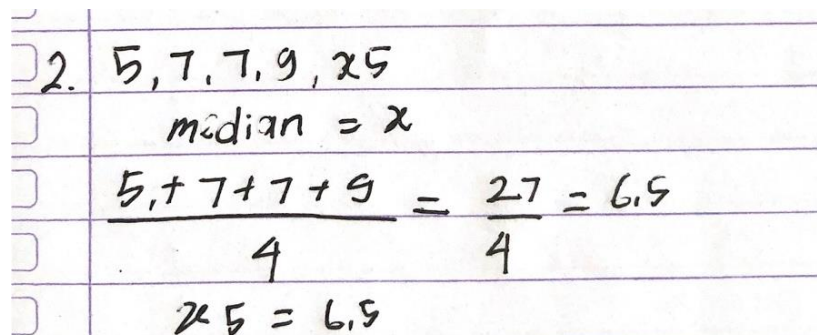 2. 5, 7, 7, 9, x5
median = x
5, + 7 + 7 + 9 / 4 = 27 / 4 = 6,5
x5 = 6,5